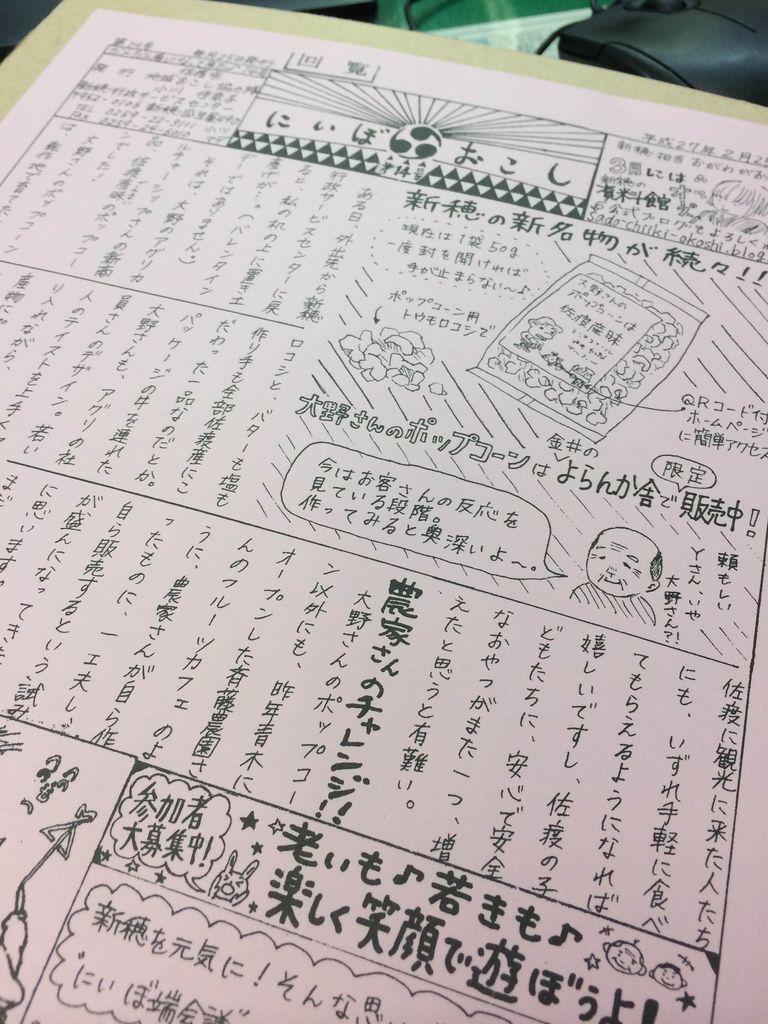 回覧
第14号
毎月25日発行
発行 佐渡市
地域おこし協力隊
小川
新穂行政サービスセンター
〒952-0106 新穂瓜生屋490
TEL 0259-22-
FAX 0259-
にいぼおこし
第14号
平成27年2月2
新穂担当 おがわがお
3月には
新穂の
資料館
公式ブログもよろしく
sado-chiiki-okoshi.blog
新穂の新名物が続々!!
現在は1袋50g
一度封を開ければ
手が止まらない〜♪
ポップコーン用
トウモロコシで
大野さんの
ポップコーンは
佐渡産味
QRコード付
ホームページ
に簡単アクセス
大野さんのポップコーンは
金井の
よらんか舎で
限定
販売中!
今はお客さんの反応を
見ている段階。
作ってみると奥深いよ〜。
頼もしい
Yさん、いや
大野さん?!
ある日、外出先から新穂
行政サービスセンターに戻
ると、私の机の上に置き土
産げが…。(バレンタイン
デーではありません。)
それは、大野のアグリカ
ルチャーシップさんの新商
品「佐渡産味」のポップコー
でした。
大野さんのポップコーン
は、
ロコシと、バターも塩も
作り手も全部佐渡産にこ
だわった一品なのだとか。
パッケージの牛を連れた
大野さんも、アグリの社
員さんのデザイン。若い
人のテイストを上手く
り入れながら、
産物に。
佐渡に観光に来た人たち
にも、いずれ手軽に食べ
てもらえるようになれば
嬉しいですし、佐渡の子
どもたちに、安心で安全
なおやつがまた一つ、増
えたと思うと有難い。
農家さんのチャレンジ!!
大野さんのポップコー
ン以外にも、昨年青木に
オープンした斉藤農園さ
んのフルーツカフェのよ
うに、農家さんが自ら作
ったものに、一工夫し、
自ら販売するという試み
が盛んになってきた
に思います。
まだ
参加者
大募集中!
老いも♪若きも♪
楽しく笑顔で遊ぼうよ!
新穂を元気に!そんな思
"にいぼ端会議"